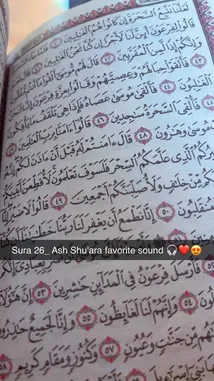 لَعَلَّنَا نَتَّبِعُ السَّحَرَةَ إِن كَانُوا هُمُ الْغَالِبِينَ ٤٠
قَالُوا لِفِرْعَوْنَ أَئِنَّ لَنَا لَأَجْرًا إِن كُنَّا نَحْنُ الْغَالِبِينَ
وَإِنَّكُمْ إِذًا لَّمِنَ الْمُقَرَّبِينَ ٤٢ قَالَ لَهُم مُّوسَىٰ أَلْقُوا
فَأَلْقَوْا حِبَالَهُمْ وَعِصِيَّهُمْ وَقَالُوا بِعِزَّةِ فِرْعَوْنَ
الْغَالِبُونَ ٤٤ فَأَلْقَىٰ مُوسَىٰ عَصَاهُ فَإِذَا هِيَ تَلْقَفُ مَا يَأْفِكُونَ
فَأُلْقِيَ السَّحَرَةُ سَاجِدِينَ ٤٦ قَالُوا آمَنَّا بِرَبِّ الْعَالَمِينَ
وَهَارُونَ ٤٨ قَالَ آمَنتُمْ لَهُ قَبْلَ أَنْ آذَنَ لَكُمْ
الَّذِي عَلَّمَكُمُ السِّحْرَ فَلَسَوْفَ تَعْلَمُونَ لَأُقَطِّعَنَّ
مِّنْ خِلَافٍ وَلَأُصَلِّبَنَّكُمْ أَجْمَعِينَ ٤٩ قَالُوا لَا ضَيْرَ
٥٠ إِنَّا نَطْمَعُ أَن يَغْفِرَ لَنَا رَبُّنَا خَطَايَانَا
Sura 26_ Ash Shu'ara favorite sound 🎧❤️😍
فَأَرْسَلَ فِرْعَوْنُ فِي الْمَدَائِنِ حَاشِرِينَ ٥٣ إِنَّ هَٰؤُلَاءِ
٥٤ وَإِنَّهُمْ لَنَا لَغَائِظُونَ ٥٥ وَإِنَّا لَجَمِيعٌ
مِّن جَنَّاتٍ وَعُيُونٍ ٥٧ وَكُنُوزٍ وَمَقَامٍ كَرِيمٍ ٥٨